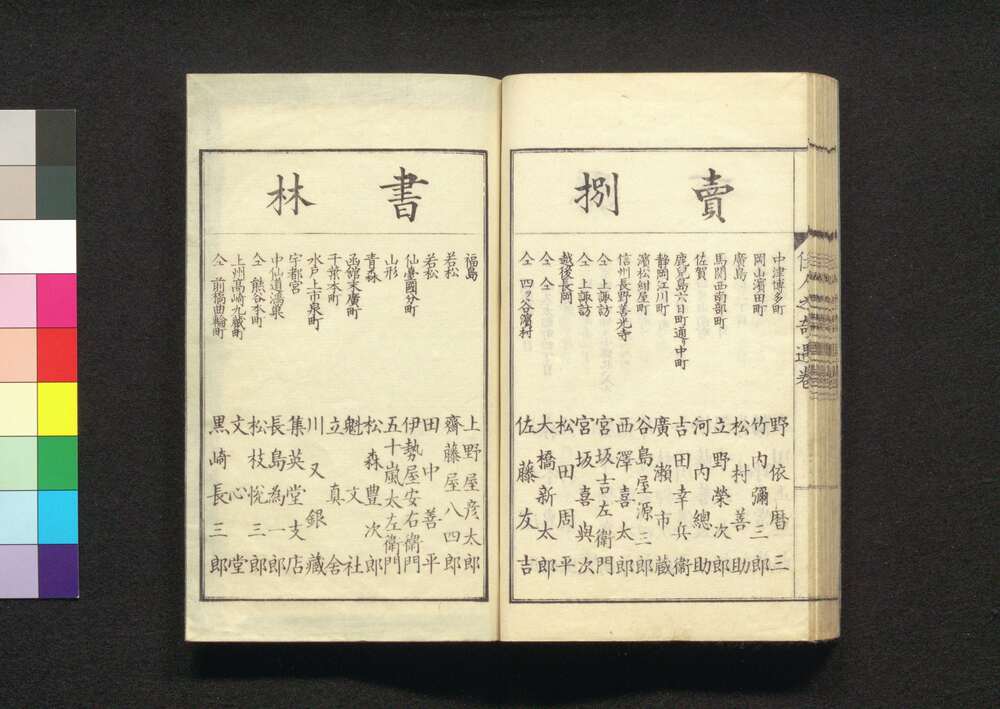 賣捌
佳人之奇遇卷
中津博多町 野依暦三
岡山濱田町 竹内彌三郎
廣島 松村善助
馬関西南部町 立野榮次郎
佐賀 河内總助
鹿兒島六日町通リ中町 吉田幸兵衛
静岡江川町 廣瀬市藏
濱松紺屋町 谷島屋源三郎
信州長野善光寺 西澤喜太郎
仝 上諏訪 宮坂吉左衛門
仝 上諏訪 宮坂喜與次
越後長岡 松田周平
仝 仝 大橋新太郎
仝 四ツ谷濱村 佐藤友吉
書林
福島 上野屋彦太郎
若松 齋藤屋八四郎
若松 田中善平
仙臺國分町 伊勢屋安右衛門
山形 五十嵐太左衛門
青森 松森豊次郎
函館末廣町 魁文社
千葉本町 立真舎
水戸上市泉町 川又銀藏
宇都宮 集英堂支店
中仙道鴻巣 長島為一郎
仝 熊谷本町 松枝悦三郎
上州高崎九藏町 文心堂
仝 前橋曲輪町 黒崎長三郎